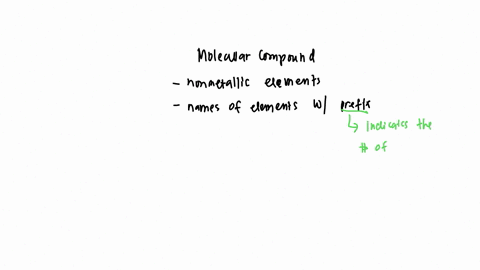 Molecular Compound
- nonmetallic elements
- names of elements w/ prefix
↳ indicates the
# of